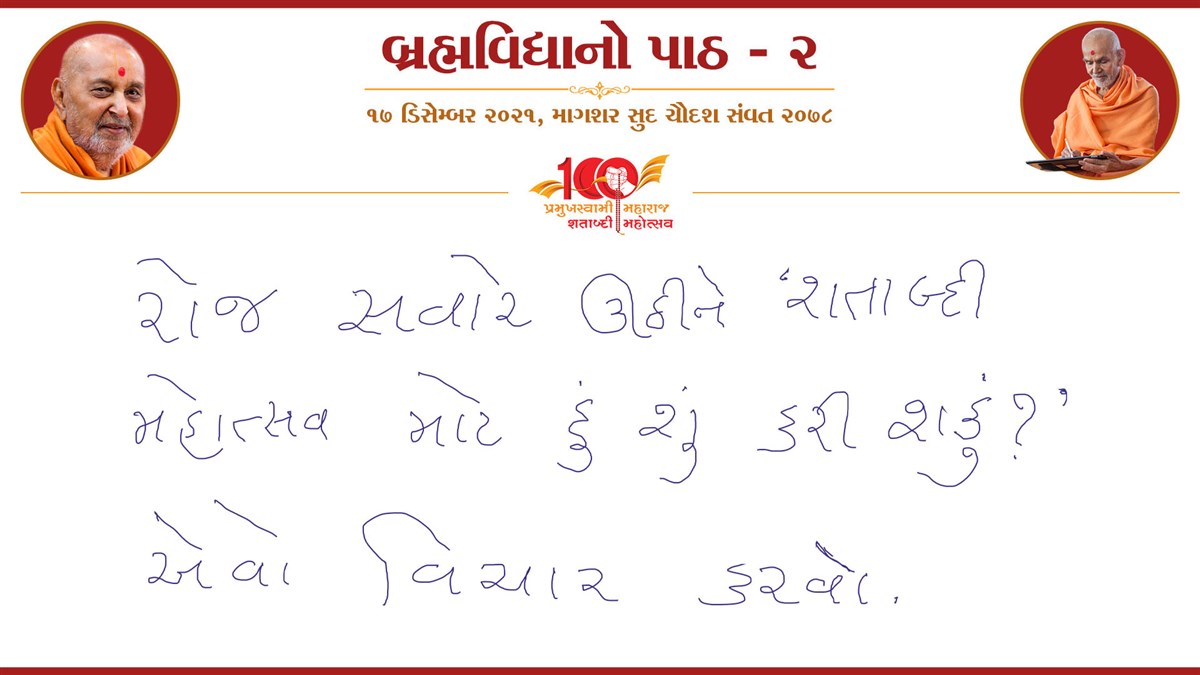 બ્રહ્મવિદ્યાનો પાઠ - ૨
૧૭ ડિસેમ્બર ૨૦૨૧, માગશર સુદ ચૌદશ સંવત ૨૦૭૮
100
પ્રમુખસ્વામી મહારાજ
શતાબ્દી મહોત્સવ
રોજ સવારે ઊઠીને ‘શતાબ્દી
મહોત્સવ માટે હું શું કરી શકું?’
એવો વિચાર કરવો.